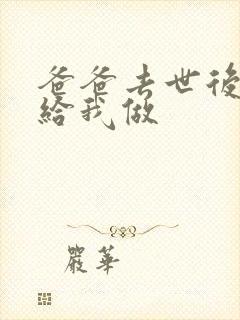 爸爸去世後
給我做
嚴華